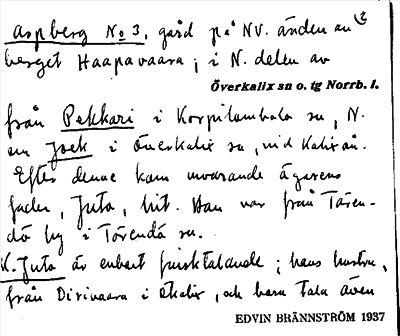 Aspberg No 3, gård på NV. änden av
berget Haapavaara; i N. delen av
Överkalix sn o. tg Norrb. l.
från Pekkari i Korpilombolo sn, N.
om Jock i Överkalix sn, vid Kalixän.
Efter denne kom nuvarande ägarens
fader, Juto, hit. Han var från Tären-
dö by i Tärendö sn.
K. Juto är enbart finsktalande; hans hustru,
från Dirivaara i Ökalix, och barn tala även
EDVIN BRÄNNSTRÖM 1937